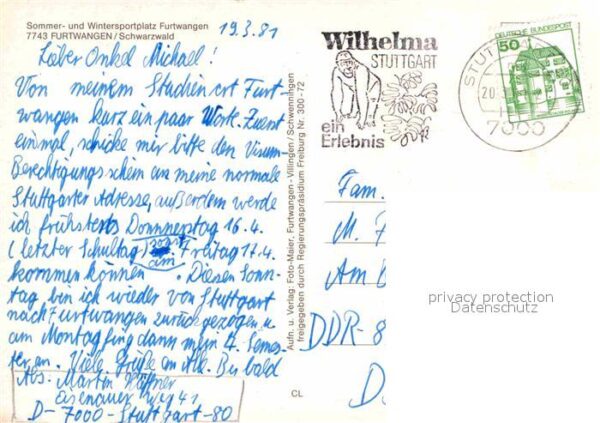 Sommer- und Wintersportplatz Furtwangen
7743 FURTWANGEN / Schwarzwald
19.3.81
Lieber Onkel Michael!
Von meinem Studienort Furt-
wangen kurz ein paar Worte. Zuerst
einmal, schicke mir bitte den Visum-
Berechtigungsschein an meine normale
Stuttgarter Adresse, außerdem werde
ich frühstens Donnnerstag 16.4.
(letzter Schultag) sonst am Freitag 17.4.
kommen können. Diesen Sonn-
tag bin ich wieder von Stuttgart
nach Furtwangen zurückgezogen u.
am Montag fing dann mein 4. Semes-
ter an. Viele Grüße an Alle. Bis bald
Abs: Martin
Eisenauer Weg 41
D-7000-Stuttgart-80
Aufn. u. Verlag: Foto-Maier, Furtwangen - Villingen / Schwenningen
freigegeben durch Regierungspräsidium Freiburg Nr. 300-72
CL
Wilhelma
STUTTGART
ein
Erlebnis
STUT
20.
7000
50
DEUTSCHE BUNDESPOST
Fam.
M.
Am
DDR-8
D
privacy protection
Datenschutz